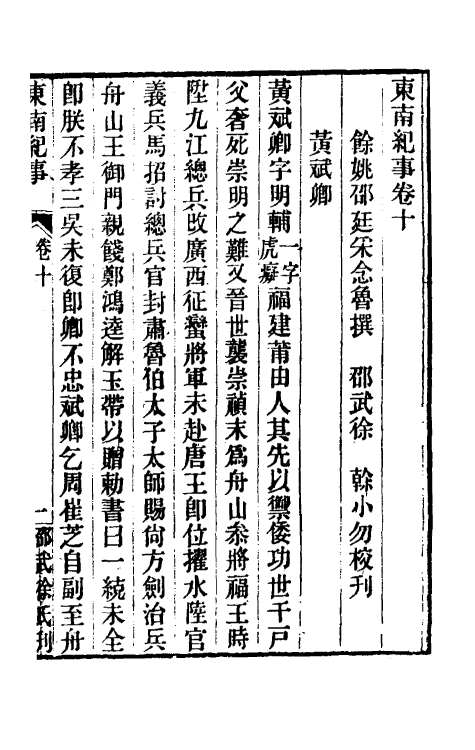 東南紀事卷十
餘姚邵廷采念魯撰　邵武徐　榦小勿校刊
黃斌卿
黃斌卿字明輔一字虎癡福建莆田人其先以禦倭功世千戸
父奢死崇明之難又晉世襲崇禎末爲舟山叅將福王時
陞九江總兵改廣西征蠻將軍未赴唐王卽位擢水陸官
義兵馬招討總兵官封肅魯伯太子太師賜尙方劍治兵
舟山王御門親餞鄭鴻逵解玉帶以贈勅書曰一統未全
卽朕不孝三吳未復卽卿不忠斌卿乞周崔芝自副至舟
東南紀事　卷十　一　邵武徐氏刊